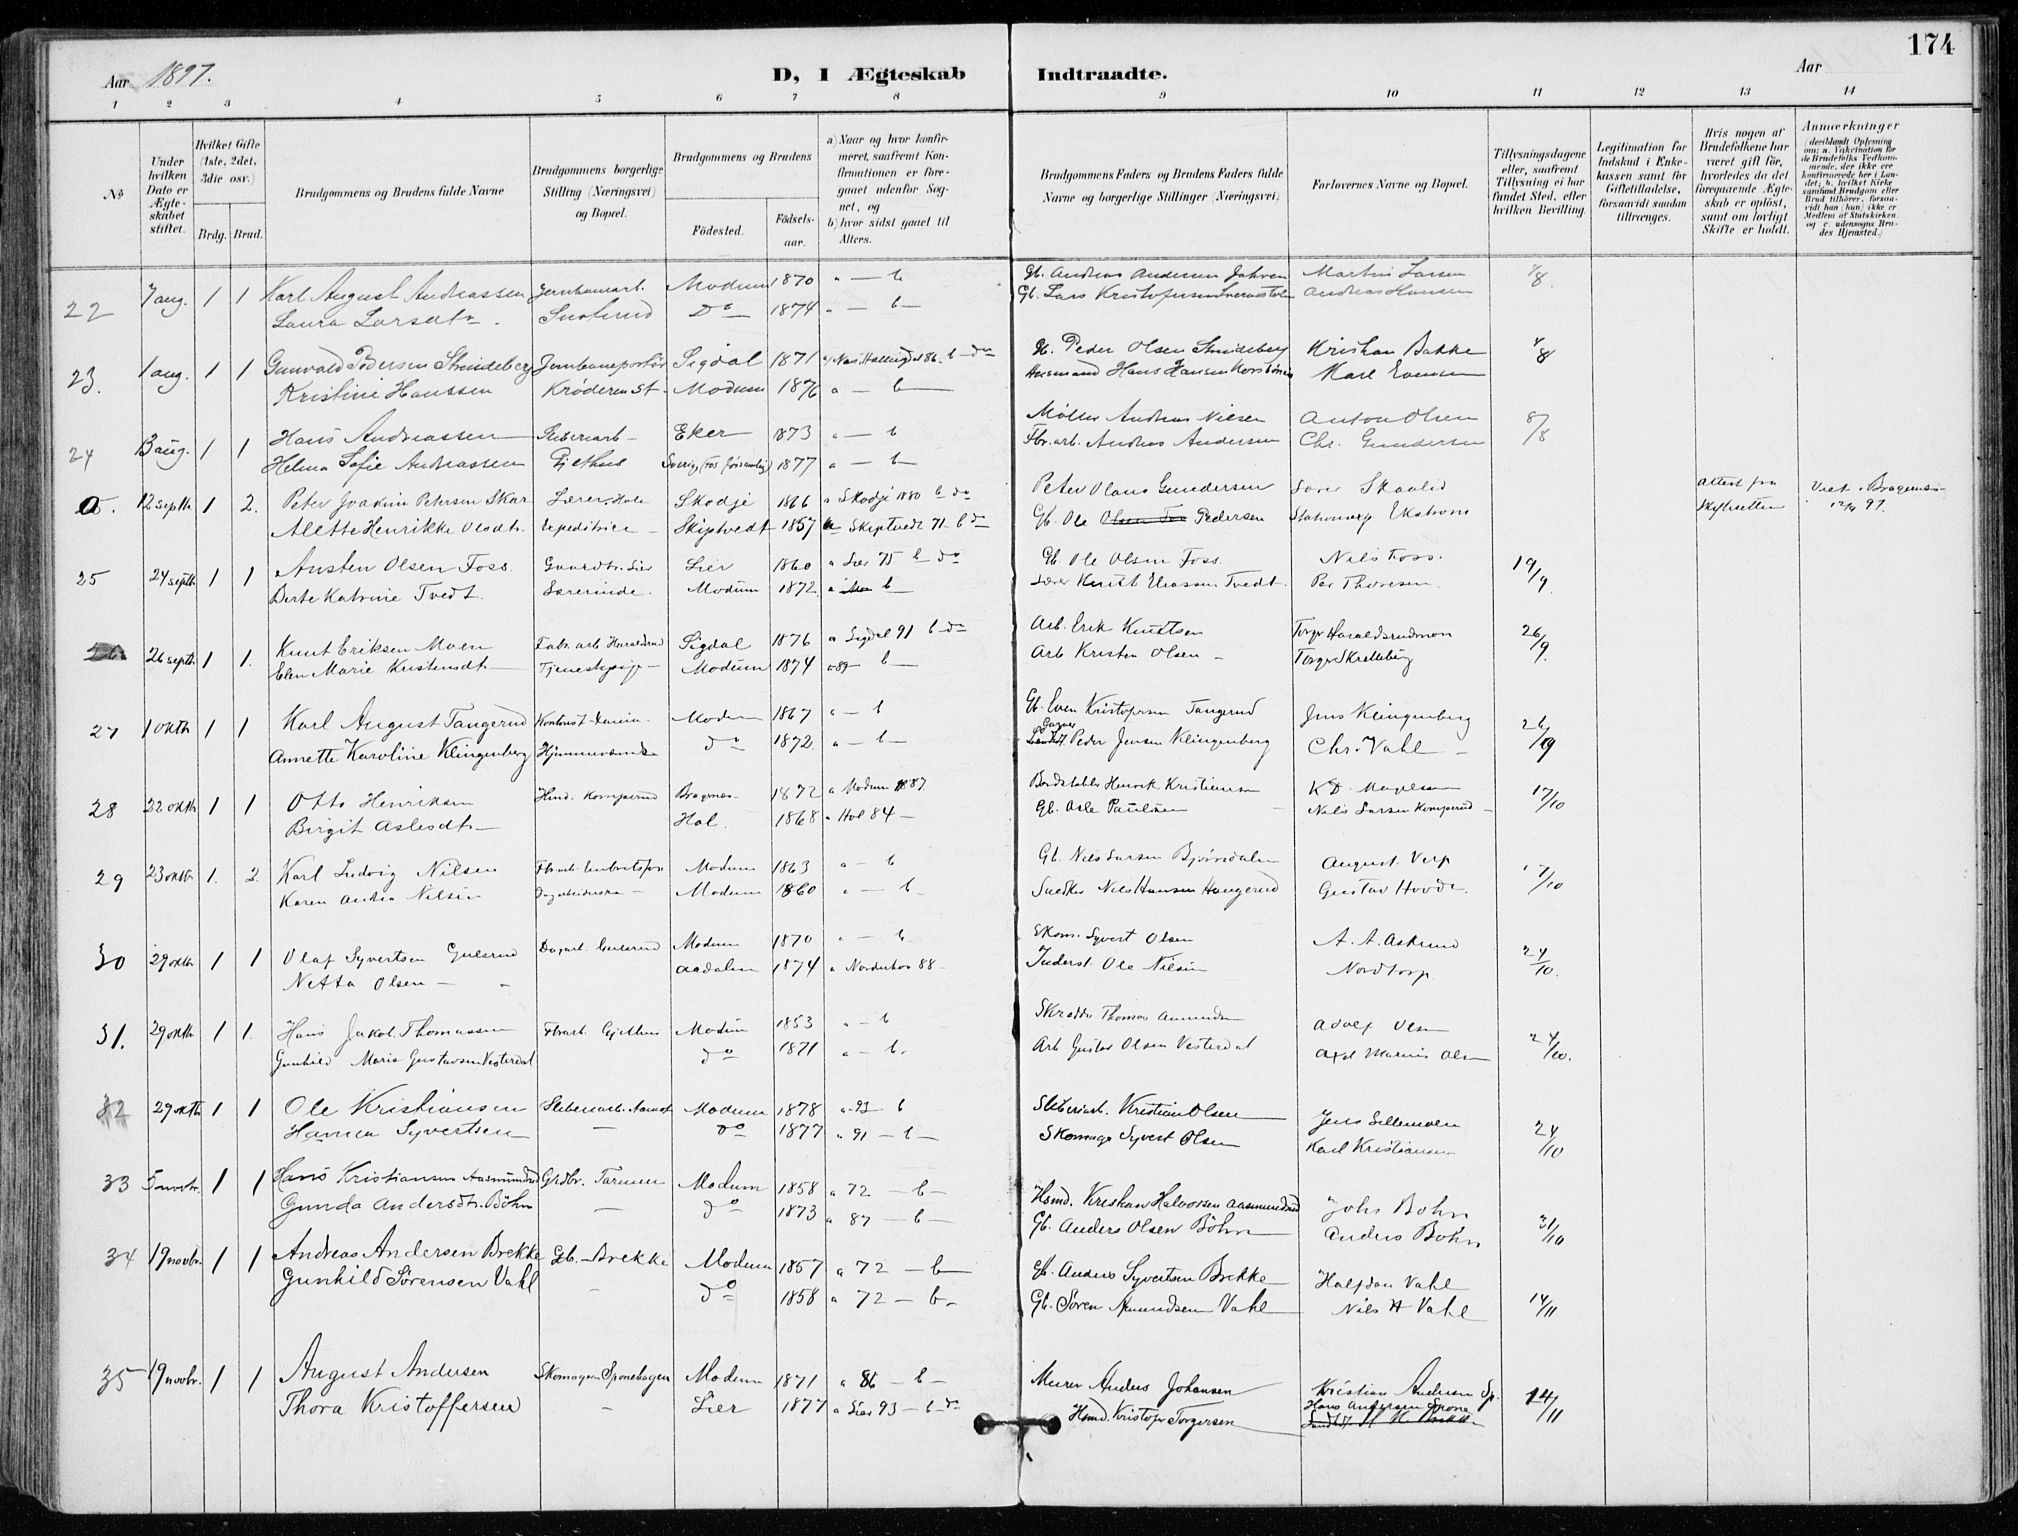 174
Aar 1897.
D, I Ægteskab Indtraadte.
Aar
1 2 3 4 5 6 7 8 9 10 11 12 13 14
No
Under hvilken Dato er Ægteskabet stiftet.
Hvilket Gifte (1ste, 2det, 3die osv.)
Brdg. Brud.
Brudgommens og Brudens fulde Navne
Brudgommens borgerlige Stilling (Næringsvei) og Bopæl.
Brudgommens og Brudens
Födested.
Födselsaar.
a) Naar og hvor konfirmeret, saafremt Konfirmationen er foregaaet udenfor Sognet, og
b) hvor sidst gaaet til Alters.
Brudgommens Faders og Brudens Faders fulde Navne og borgerlige Stillinger (Næringsvei)
Forlovernes Navne og Bopæl.
Tillysningsdagene eller, saafremt Tillysning ei har fundet Sted, efter hvilken Bevilling.
Legitimation for Indskud i Enkekassen samt for Giftetilladelse, forsaavidt saadan tiltrænges.
Hvis nogen af Brudefolkene har været gift för, hvorledes da det foregaaende Ægteskab er oplöst, samt om lovligt Skifte er holdt.
Anmærkninger (deriblandt Oplysning om: a. Vakcination for de Brudefolks Vedkommende, der ikke ere konfirmerede her i Landet; b. hvilket Kirkesamfund Brudgom eller Brud tilhörer, forsaavidt han (hun) ikke er Medlem af Statskirken, og c. udensogns Brudes Hjemsted.)
22 7 aug. 1 1 Karl August Andreassen Jernbanearb. Modum 1870 a — b Gb. Andreas Andersen Martin Larsen 7/8
Laura Larsdtr. Do 1874 a — b — Gb. Lars Kristofersen Andreas Hansen
23. 1 aug. 1 1 Gunvald Pedersen Strindeberg Jernbaneportør Sigdal 1871 86. b — do Gb. Peder Olsen Strindeberg Kristian Bakke
Kristine Hanssen Krøderen St. Modum 1876 a — b — Husmand Hans Hansen Karl Evensen
24 13 aug. 1 1 Hans Andreassen Sliberiarb — Eker 1873 a — b Møller Andreas Nielsen Anton Olsen 8/8
Helma Sofie Andreassen Gjethus 1877 a — b — Fbr. arb. Andreas Andersen Chr. Gundersen
a. 12 septb 1 2. Peter Joakim Petersen Skar Lærer Skodje 1866 a Skodje 1880 b do Peter Olaus Gundersen Lærer Skaalid Attest fra Skifteretten Viet i Bragernes 12/9 97.
Alette Henrikke Olsdtr. Expeditrice — Skiptvedt 1857 a Skiptvedt 71 — b do Gb. Ole Pedersen Stationsexp Ekstrøm
25 24 septb 1 1 Austen Olsen Foss Gaardbr. Lier Lier 1860 a Lier 75 b — do Gb. Ole Olsen Foss Nils Foss. 19/9.
Berte Katrine Tvedt. Lærerinde. Modum 1872. a b — Lærer Knut Eliassen Tvedt. Per Thoresen.
26 septb 1 1. Knut Eriksen Moen Fabr. arb. Haraldsrud Sigdal 1876 a Sigdal 91 b — do Arb. Erik Knutsen Torger Haraldsrudmoen 26/9.
Elen Marie Kristensdtr. Tjenestepige — Modum 1874 a 89 — b — Arb Kristen Olsen — Torger Skretteberg
27 1 oktb 1 1 Karl August Tangerud Kontorist Modum 1867 a — b Gb. Even Kristofersen Tangerud Jens Klingenberg 26/9
Annette Karoline Klingenberg Hjemmeværende do 1872. a — b — Peder Jensen Klingenberg Chr. Vahl —
28 22 oktb. 1 1 Otto Henriksen Komperud Bragernes 1872 a Modum 1887. Henrik Kristiansen K D 17/10
Birgit Aslesdtr — Hol. 1868 a Hol 84 — Gb. Asle Paulsen — Nils Larsen Komperud —
29 23 oktb. 1. 2. Karl Ludvig Nilsen Fbr. arb. Modum 1863 a — b Gb. Nils Larsen Bjørndalen August Verp 17/10
Karen Andrea Nilsen Modum 1860 a — b — Snedker Nils Hansen Haugerud Gustav Hovde.
30 29 oktb 1 1 Olaf Syvertsen Gulsrud Dagarb. Gulsrud Modum 1870 a — b. Syvert Olsen A. A. Askerud 24/10.
Netta Olsen — Aadalen 1874 a Norderhov 88 — Inderst. Ole Nilsen Nordtorp.
31. 29 oktb 1 1. Hans Jakob Thomassen Fbrarb. Gjethus Modum 1853 a — b Skrædder Thomas Amundsen Adolf Olsen 24/10.
Gunhild Marie Gustavsen Vesterdal do 1871 a — b. Arb Gustav Olsen Vesterdal Axel Marius Olsen
32 29 oktb 1 1 Ole Kristiansen Sliberiarb. Modum 1878 a 93 b Sliberiarb. Kristian Olsen Jens Sillemoen 24/10
Hanna Syvertsen — do 1877 a 91 — b — Skomager Syvert Olsen Karl Kristiansen
33 5 novbr. 1 1 Hans Kristiansen Aasmundrud Grdbr. Modum 1858 a 72 — b — Hsmd. Kristian Halvorsen Aasmundrud Johs Bøhn 31/10
Gunda Andersdtr. Bøhn — do 1873 a 87 — b — Gb. Anders Olsen Bøhn Anders Bøhn
34 19 novbr. 1 1 Andreas Andersen Brekke Gb. — Brekke Modum 1857 a 72 — b — Gb. Anders Syvertsen Brekke Halfdan Vahl 14/11
Gunhild Sørensen Vahl — do 1858 a 72 — b — Gb. Søren Amundsen Vahl Nils H Vahl
35 19 novbr. 1 1 August Andersen Skomager Sponehagen Modum 1871 a 86 — b — Murer Anders Johansen Kristian Andersen Sp. 14/11
Thora Kristoffersen — Lier 1877 a Lier 93 — b — do Hsmd. Kristofer Torgersen Hans Andersen Spone